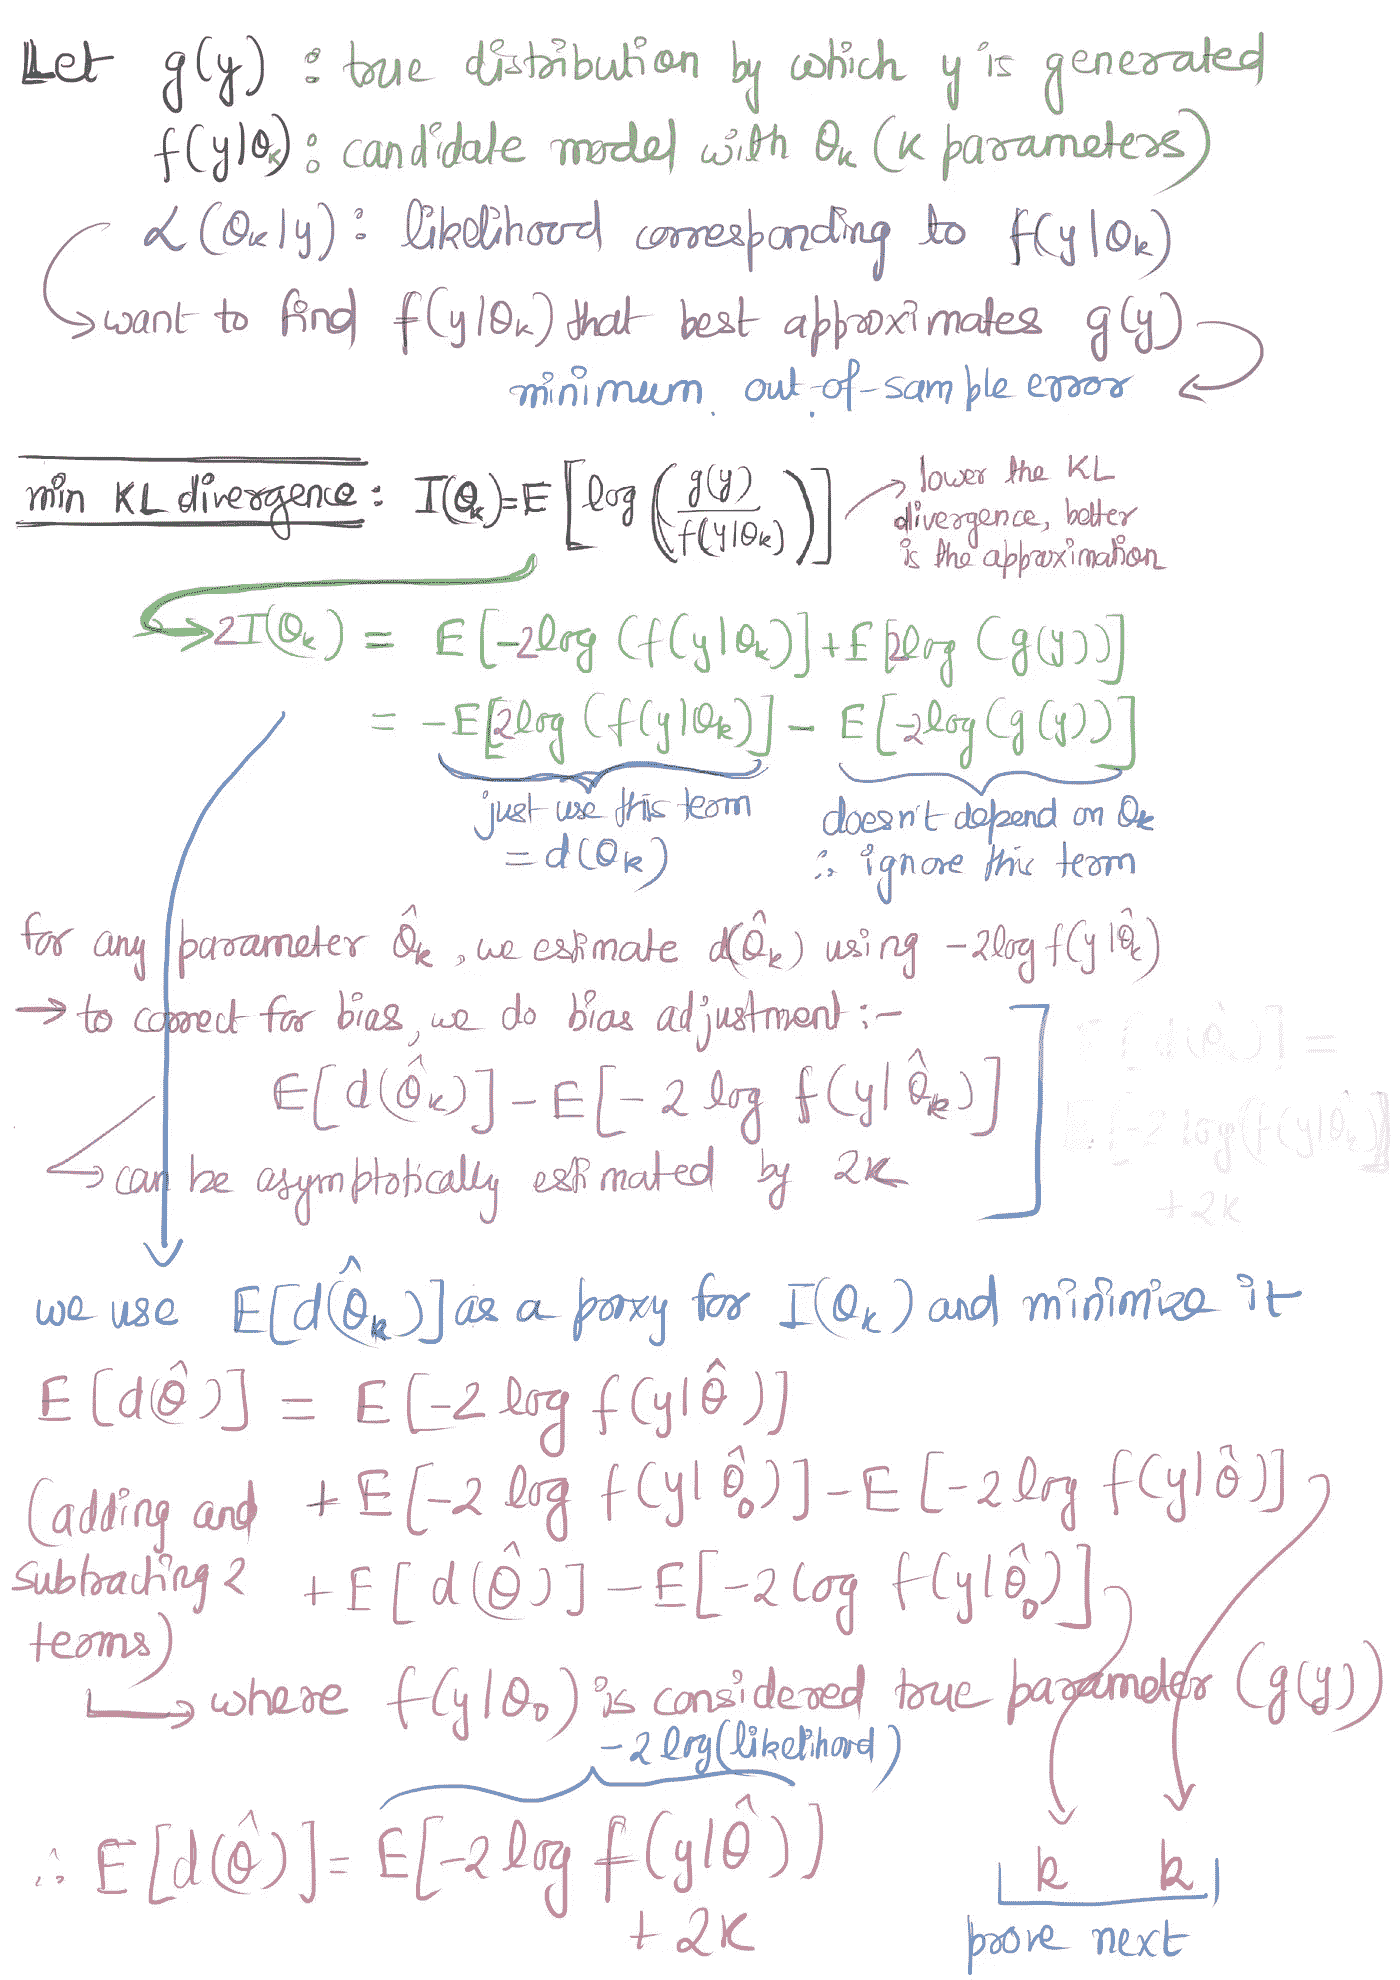 Let g(y) : true distribution by which y is generated
f(y|θₖ) : candidate model with θₖ (k parameters)
ℒ(θₖ|y) : likelihood corresponding to f(y|θₖ)
→ want to find f(y|θₖ) that best approximates g(y)
minimum out-of-sample error
min KL divergence : I(θₖ) = E[log(g(y)/f(y|θₖ))]
→ lower the KL
divergence, better
is the approximation
→ 2I(θₖ) = E[-2log(f(y|θₖ)] + E[2log(g(y))]
= -E[2log(f(y|θₖ)] - E[-2log(g(y))]
just use this term
= d(θₖ)
doesn't depend on θₖ
∴ ignore this term
for any parameter θ̂ₖ, we estimate d(θ̂ₖ) using -2log f(y|θ̂ₖ)
→ to correct for bias, we do bias adjustment :-
E[d(θ̂ₖ)] - E[-2 log f(y|θ̂ₖ)]
→ can be asymptotically estimated by 2k
E[d(θ̂)] =
E[-2 log(f(y|θ̂ₖ)]
+2k
we use E[d(θ̂ₖ)] as a proxy for I(θₖ) and minimize it
E[d(θ̂)] = E[-2 log f(y|θ̂)]
+ E[-2 log f(y|θ̂₀)] - E[-2 log f(y|θ̂)]
+ E[d(θ̂)] - E[-2 log f(y|θ̂₀)]
(adding and
subtracting 2
terms)
→ where f(y|θ₀) is considered true parameter (g(y))
-2 log(likelihood)
∴ E[d(θ̂)] = E[-2 log f(y|θ̂)]
+ 2k
k k
prove next